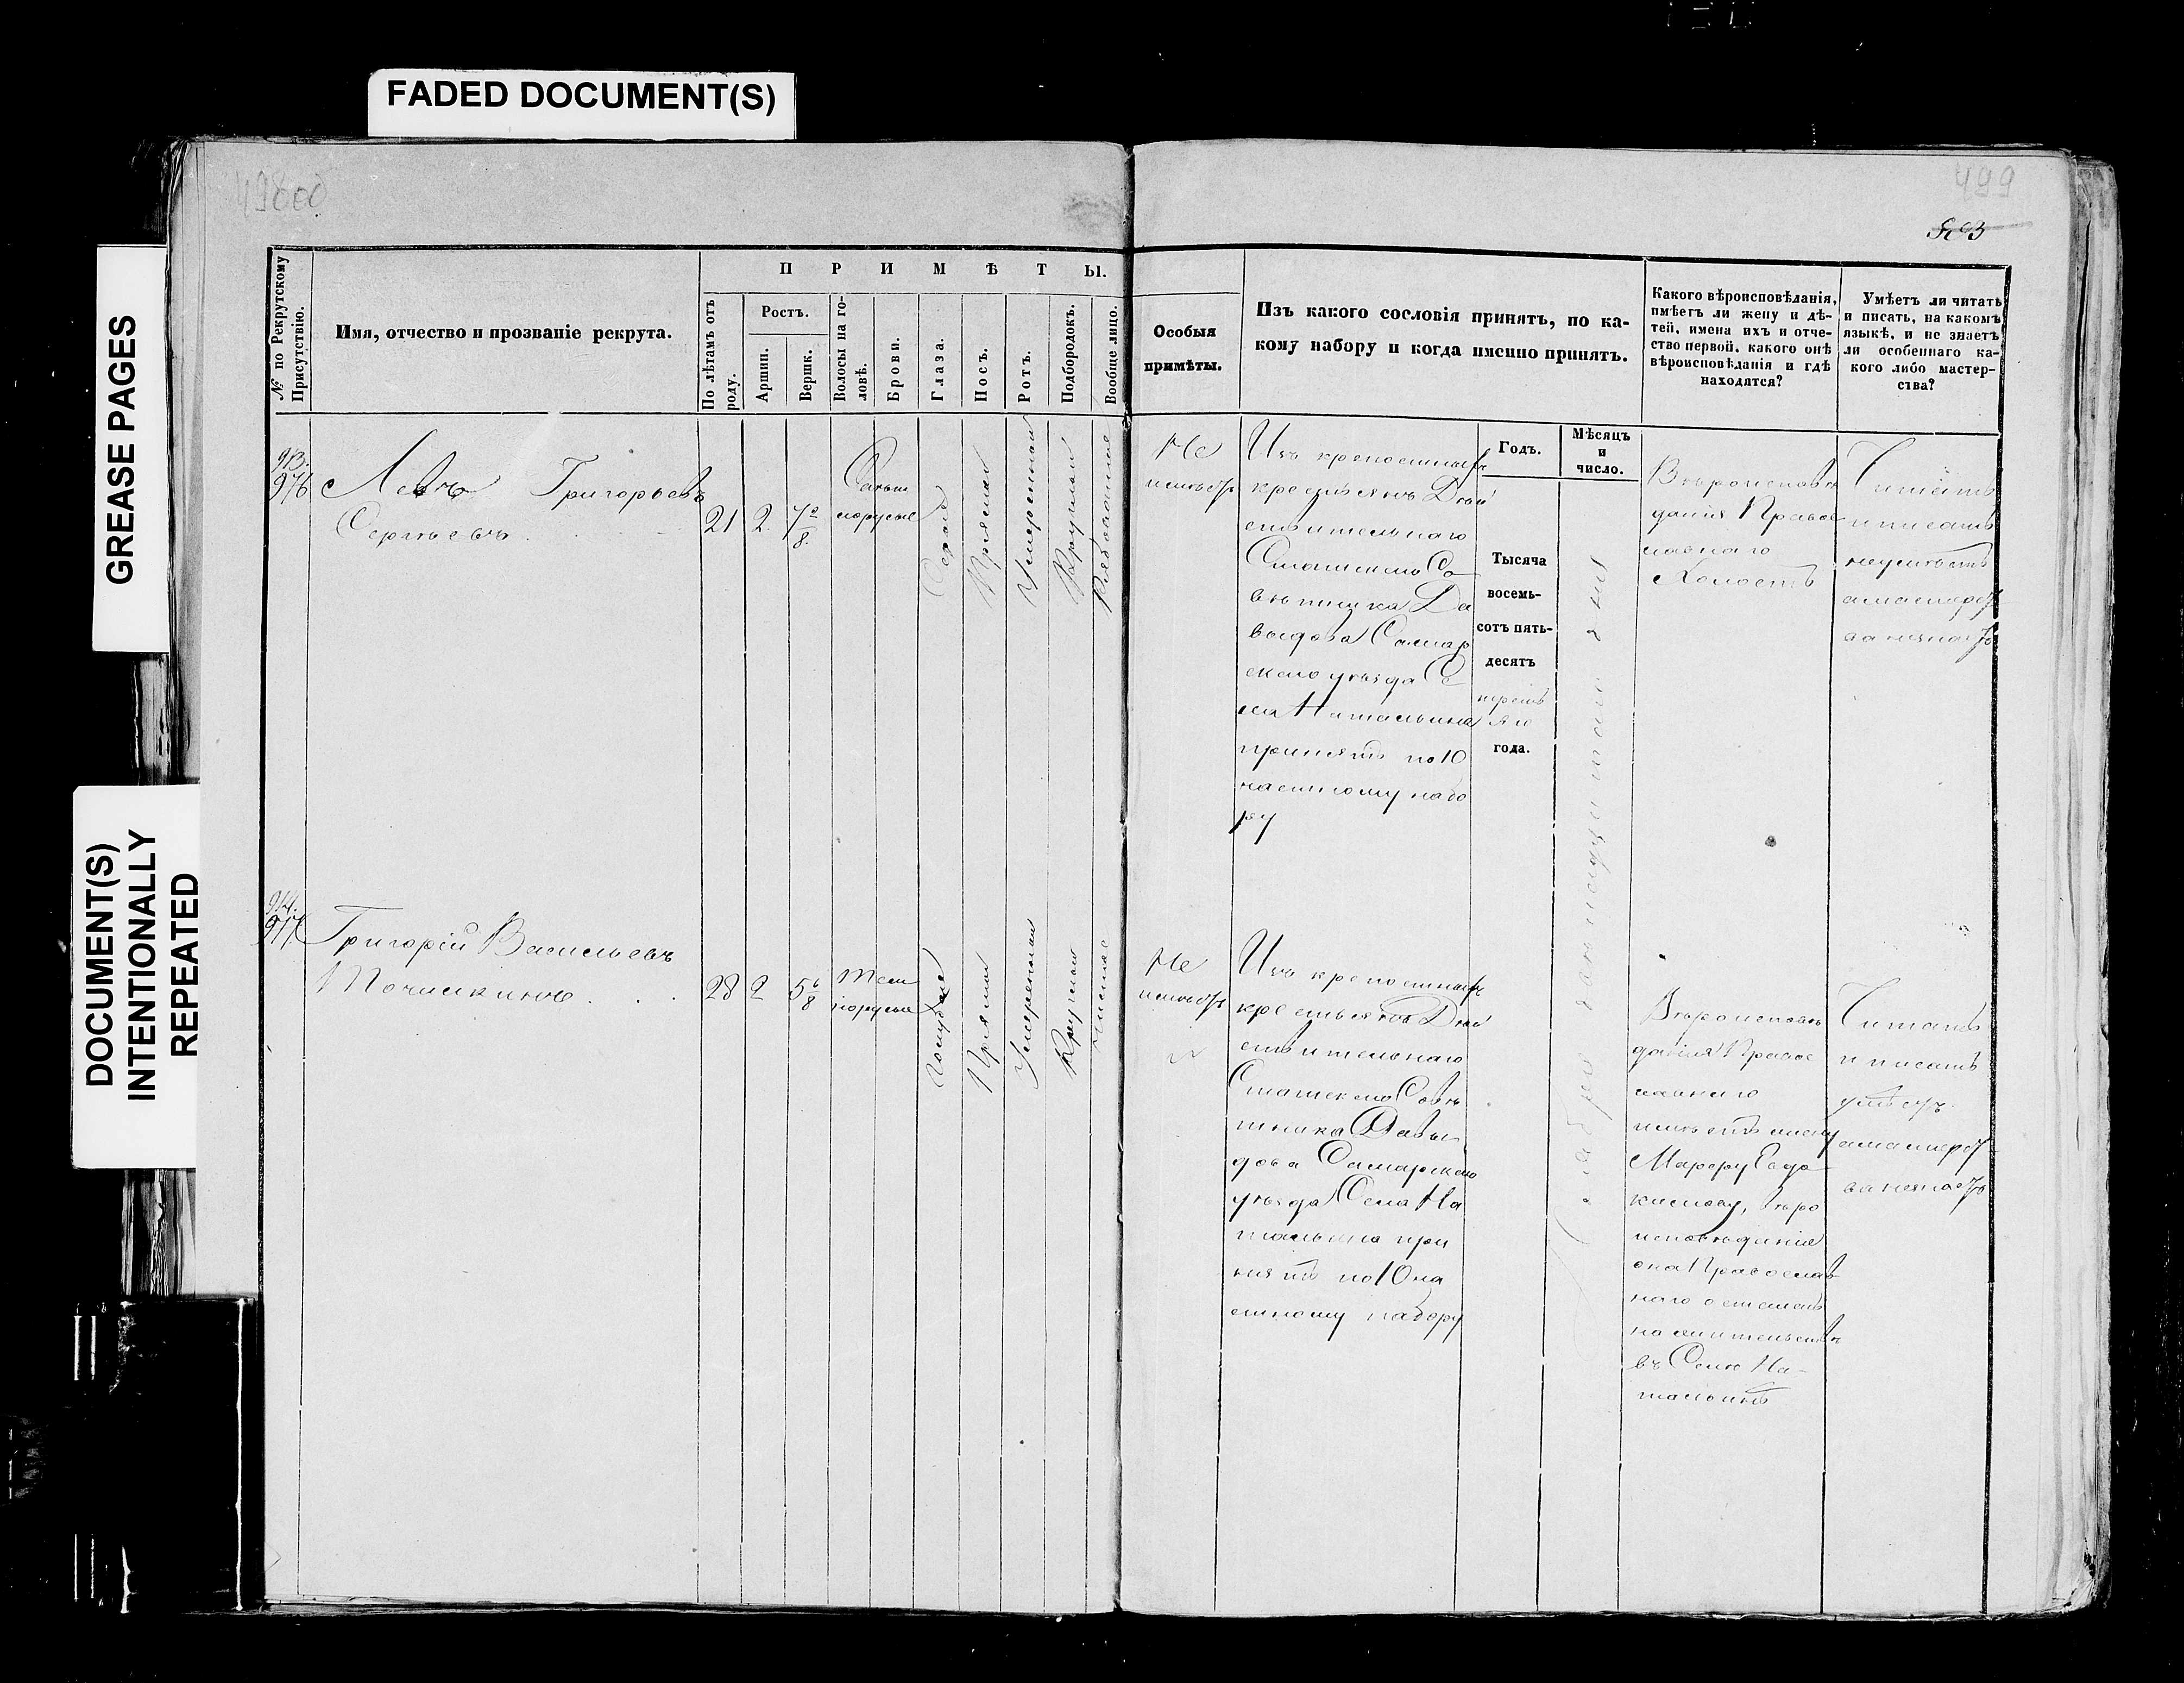 FADED DOCUMENT(S)
GREASE PAGES
DOCUMENT(S)
INTENTIONALLY
REPEATED
499
503
№ по Рекрутскому
Присутствію.
Имя, отчество и прозваніе рекрута.
ПРИМѢТЫ.
По лѣтамъ отъ
роду.
Ростъ.
Аршин.
Вершк.
Волосы на го-
ловѣ.
Брови.
Глаза.
Носъ.
Ротъ.
Подбородокъ.
Вообще лицо.
Особыя
примѣты.
Изъ какого сословія принятъ, по ка-
кому набору и когда именно принятъ.
Какого вѣроисповѣданія,
имѣетъ ли жену и дѣ-
тей, имена ихъ и отче-
ство первой, какого онѣ
вѣроисповѣданія и гдѣ
находятся?
Умѣетъ ли читать
и писать, на какомъ
языкѣ, и не знаетъ
ли особеннаго ка-
кого либо мастер-
ства?
913.
976
Левъ Григорьевъ
Сергѣевъ
21
2
7
8
норусые
Серые
Прямой
Умеренный
Круглый
Рябоватое
Не
имѣетъ
Изъ крепостныхъ
крестьянъ Дѣй
ствительнаго
Статскаго Со
вѣтника Да
выдова Самар
скаго уѣзда Се
ла Натальина
принятъ по 10
частному набо
ру
Годъ.
Тысяча
восемь-
сотъ пять-
десятъ
года.
Мѣсяцъ
и
число.
Вѣроисповѣ
данія Правос
лавнаго
Холостъ
Читать
и писать
неумѣетъ
а мастерст
ва незнаетъ
914.
977
Григорій Васильевъ
28
2
5 6/8
Тем
норусые
Голубые
Прямой
Умеренный
Круглый
Чистое
Не
имѣетъ
Изъ крепостныхъ
крестьянъ Дѣй
ствительнаго
Статскаго Совѣ
тника Давы
дова Самарскаго
уѣзда Села На
тальина при
нятъ по 10 ча
стному набору
Вѣроисповѣ
данія Правос
лавнаго
имѣетъ жену
Марфу Евдо
кимову, вѣро
исповѣданія
она Православ
наго осталась
на жительствѣ
въ Селѣ На-
тальинѣ
Читать
и писать
умѣетъ
а мастерст
ва незнаетъ